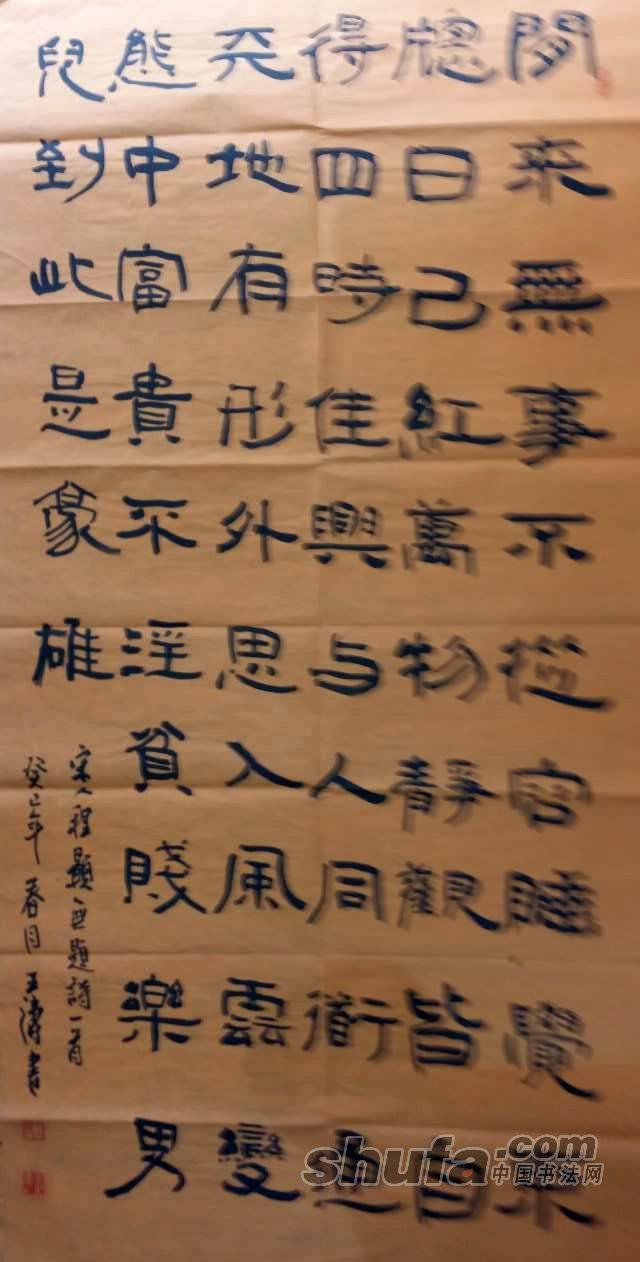 閒來無事不從容睡覺東
牕日已紅萬物靜觀皆自
得四時佳興与人同衟通
天地有形外思入風雲變
態中富貴不淫貧賤樂男
兒到此是豪雄
宋人程顥無題詩一首
癸巳年春月王濤書
shufa.com
中国书法网